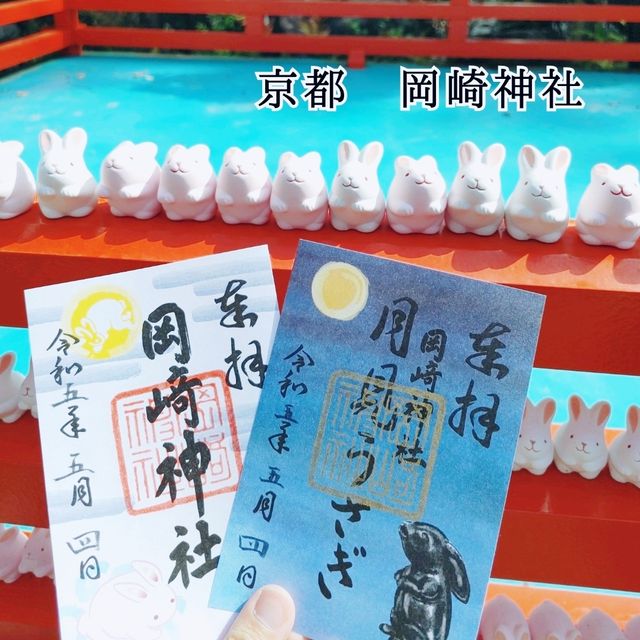 京都　岡崎神社
奉拝
岡崎神社
令和五年五月四日
奉拝
岡崎神社
月見うさぎ
令和五年五月四日